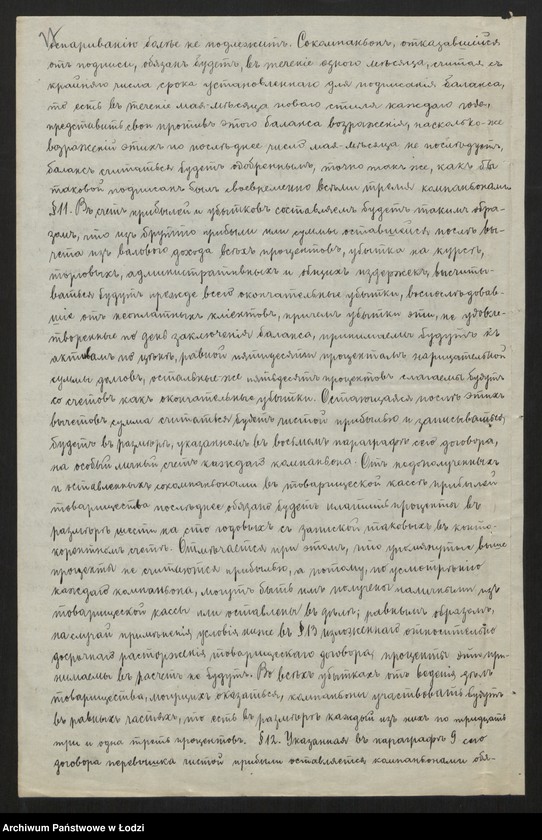 оспариванію болѣе не подлежитъ. Сокомпаньонъ, отказавшійся
отъ подписи, обязанъ будетъ, въ теченіе одного мѣсяца, считая съ
крайняго числа срока установленнаго для подписанія баланса,
то есть въ теченіе мая-мѣсяца новаго стиля каждаго года,
представить свои противъ этого баланса возраженія, насколько-же
возраженій этихъ по послѣднее число мая-мѣсяца не послѣдуетъ,
балансъ считаться будетъ одобреннымъ, точно такъ же, какъ бы
таковой подписанъ былъ своевременно всѣми тремя компаньонами.
§ 11. Въ счетъ прибылей и убытковъ составляемъ будетъ такимъ обра-
зомъ, что изъ брутто прибыли или суммы оставшейся послѣ вы-
чета изъ валового дохода всѣхъ процентовъ, убытка на курсѣ,
торговыхъ, административныхъ и общихъ издержекъ, высчиты-
ваться будутъ прежде всего окончательные убытки, воспослѣдовав-
шіе отъ неоплатныхъ кліентовъ, причемъ убытки эти, не удовле-
творенные по день заключенія баланса, принимаемы будутъ къ
активамъ по цѣнѣ, равной пятидесяти процентамъ нарицательной
суммы долговъ, остальные-же пятьдесятъ процентовъ слагаемы будутъ
со счетовъ какъ окончательные убытки. Остающаяся послѣ этихъ
вычетовъ сумма считаться будетъ чистой прибылью и записываться
будетъ въ размѣрѣ, указанномъ въ восьмомъ параграфѣ сего договора,
на особый личный счетъ каждаго компаньона. Отъ недополученныхъ
и оставленныхъ сокомпаньонами въ товарищеской кассѣ прибылей
товарищества послѣднее обязано будетъ платить проценты въ
размѣрѣ шести на сто годовыхъ съ запиской таковыхъ въ конто-
корентномъ счетѣ. Отмѣчается при этомъ, что упомянутые выше
проценты не считаются прибылью, а потому, по усмотрѣнію
каждаго компаньона, могутъ быть имъ получены наличными изъ
товарищеской кассы или оставлены въ дѣлѣ; равнымъ образомъ,
на случай примѣненія условія ниже въ § 13 изложеннаго относительно
досрочнаго расторженія товарищескаго договора, проценты эти при-
нимаемы въ расчетъ не будутъ. Во всѣхъ убыткахъ отъ веденія дѣлъ
товарищества, могущихъ оказаться, компаньоны участвовать будутъ
въ равныхъ частяхъ, то есть въ размѣрѣ каждый изъ нихъ по тридцать
три и одна треть процентовъ. § 12. Указанная въ параграфѣ 9 сего
договора перевышка чистой прибыли оставляется компаньонами обя-
Archiwum Państwowe w Łodzi
Archiwum Państwowe w Łodzi